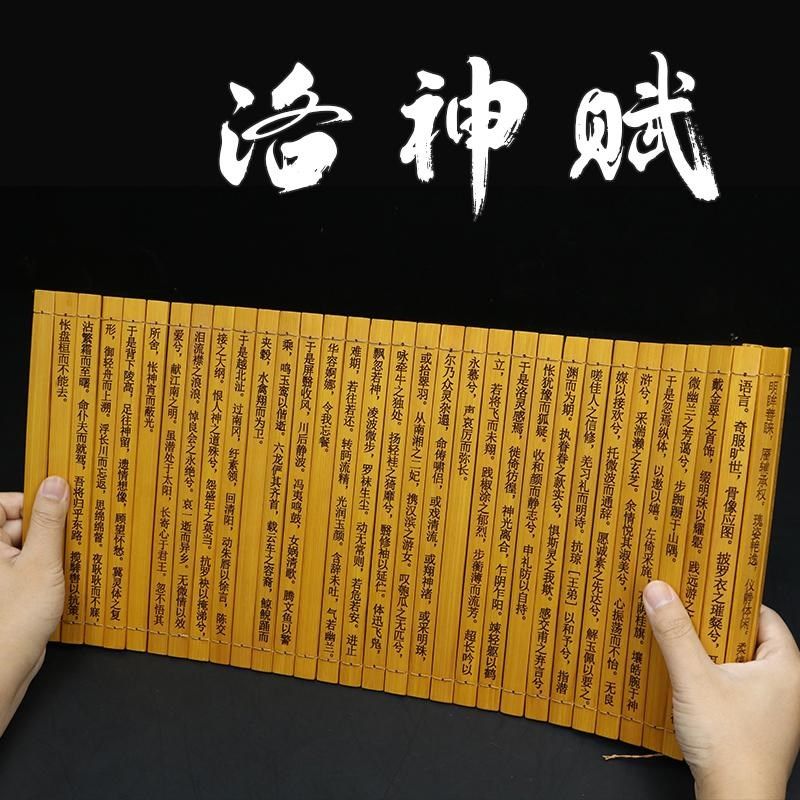 洛神赋
明眸善睐，靥辅承权。瑰姿艳逸，仪静体闲。柔
语言。奇服旷世，骨像应图。披罗衣之璀粲兮，
戴金翠之首饰，缀明珠以耀躯。践远游之
微幽兰之芳蔼兮，步踟蹰于山隅。
于是忽焉纵体，以遨以嬉。左倚采旄，
浒兮，采湍濑之玄芝。余情悦其淑美兮，心振荡而不怡。无良
媒以接欢兮，托微波而通辞。愿诚素之先达兮，解玉佩以要之。
嗟佳人之信修，羌习礼而明诗。抗琼［王弟］以和予兮，指潜
渊而为期。执眷眷之款实兮，惧斯灵之我欺。感交甫之弃言兮，
怅犹豫而狐疑。收和颜而静志兮，申礼防以自持。
于是洛灵感焉，徙倚彷徨，神光离合，乍阴乍阳。竦轻躯以鹤
立，若将飞而未翔。践椒涂之郁烈，步蘅薄而流芳。超长吟以
永慕兮，声哀厉而弥长。
尔乃众灵杂遢，命俦啸侣，或戏清流，或翔神渚，或采明珠，
或拾翠羽。从南湘之二妃，携汉滨之游女。叹匏瓜之无匹兮，
咏牵牛之独处。扬轻袿之猗靡兮，翳修袖以延伫。体迅飞凫，
飘忽若神，凌波微步，罗袜生尘。动无常则，若危若安。进止
难期，若往若还。转眄流精，光润玉颜。含辞未吐，气若幽兰。
华容婀娜，令我忘餐。
于是屏翳收风，川后静波。冯夷鸣鼓，女娲清歌。腾文鱼以警
乘，鸣玉鸾以偕逝。六龙俨其齐首，载云车之容裔，鲸鲵踊而
夹毂，水禽翔而为卫。
于是越北沚。过南冈，纡素领，回清阳，动朱唇以徐言，陈交
接之大纲。恨人神之道殊兮，怨盛年之莫当。抗罗袂以掩涕兮，
泪流襟之浪浪。悼良会之永绝兮。哀一逝而异乡。无微情以效
爱兮，献江南之明。虽潜处于太阳，长寄心于君王。忽不悟其
所舍，怅神宵而蔽光。
于是背下陵高，足往神留，遗情想像，顾望怀愁。冀灵体之复
形，御轻舟而上溯。浮长川而忘返，思绵绵督。夜耿耿而不寐，
沾繁霜而至曙。命仆夫而就驾，吾将归乎东路。揽騑辔以抗策，
怅盘桓而不能去。